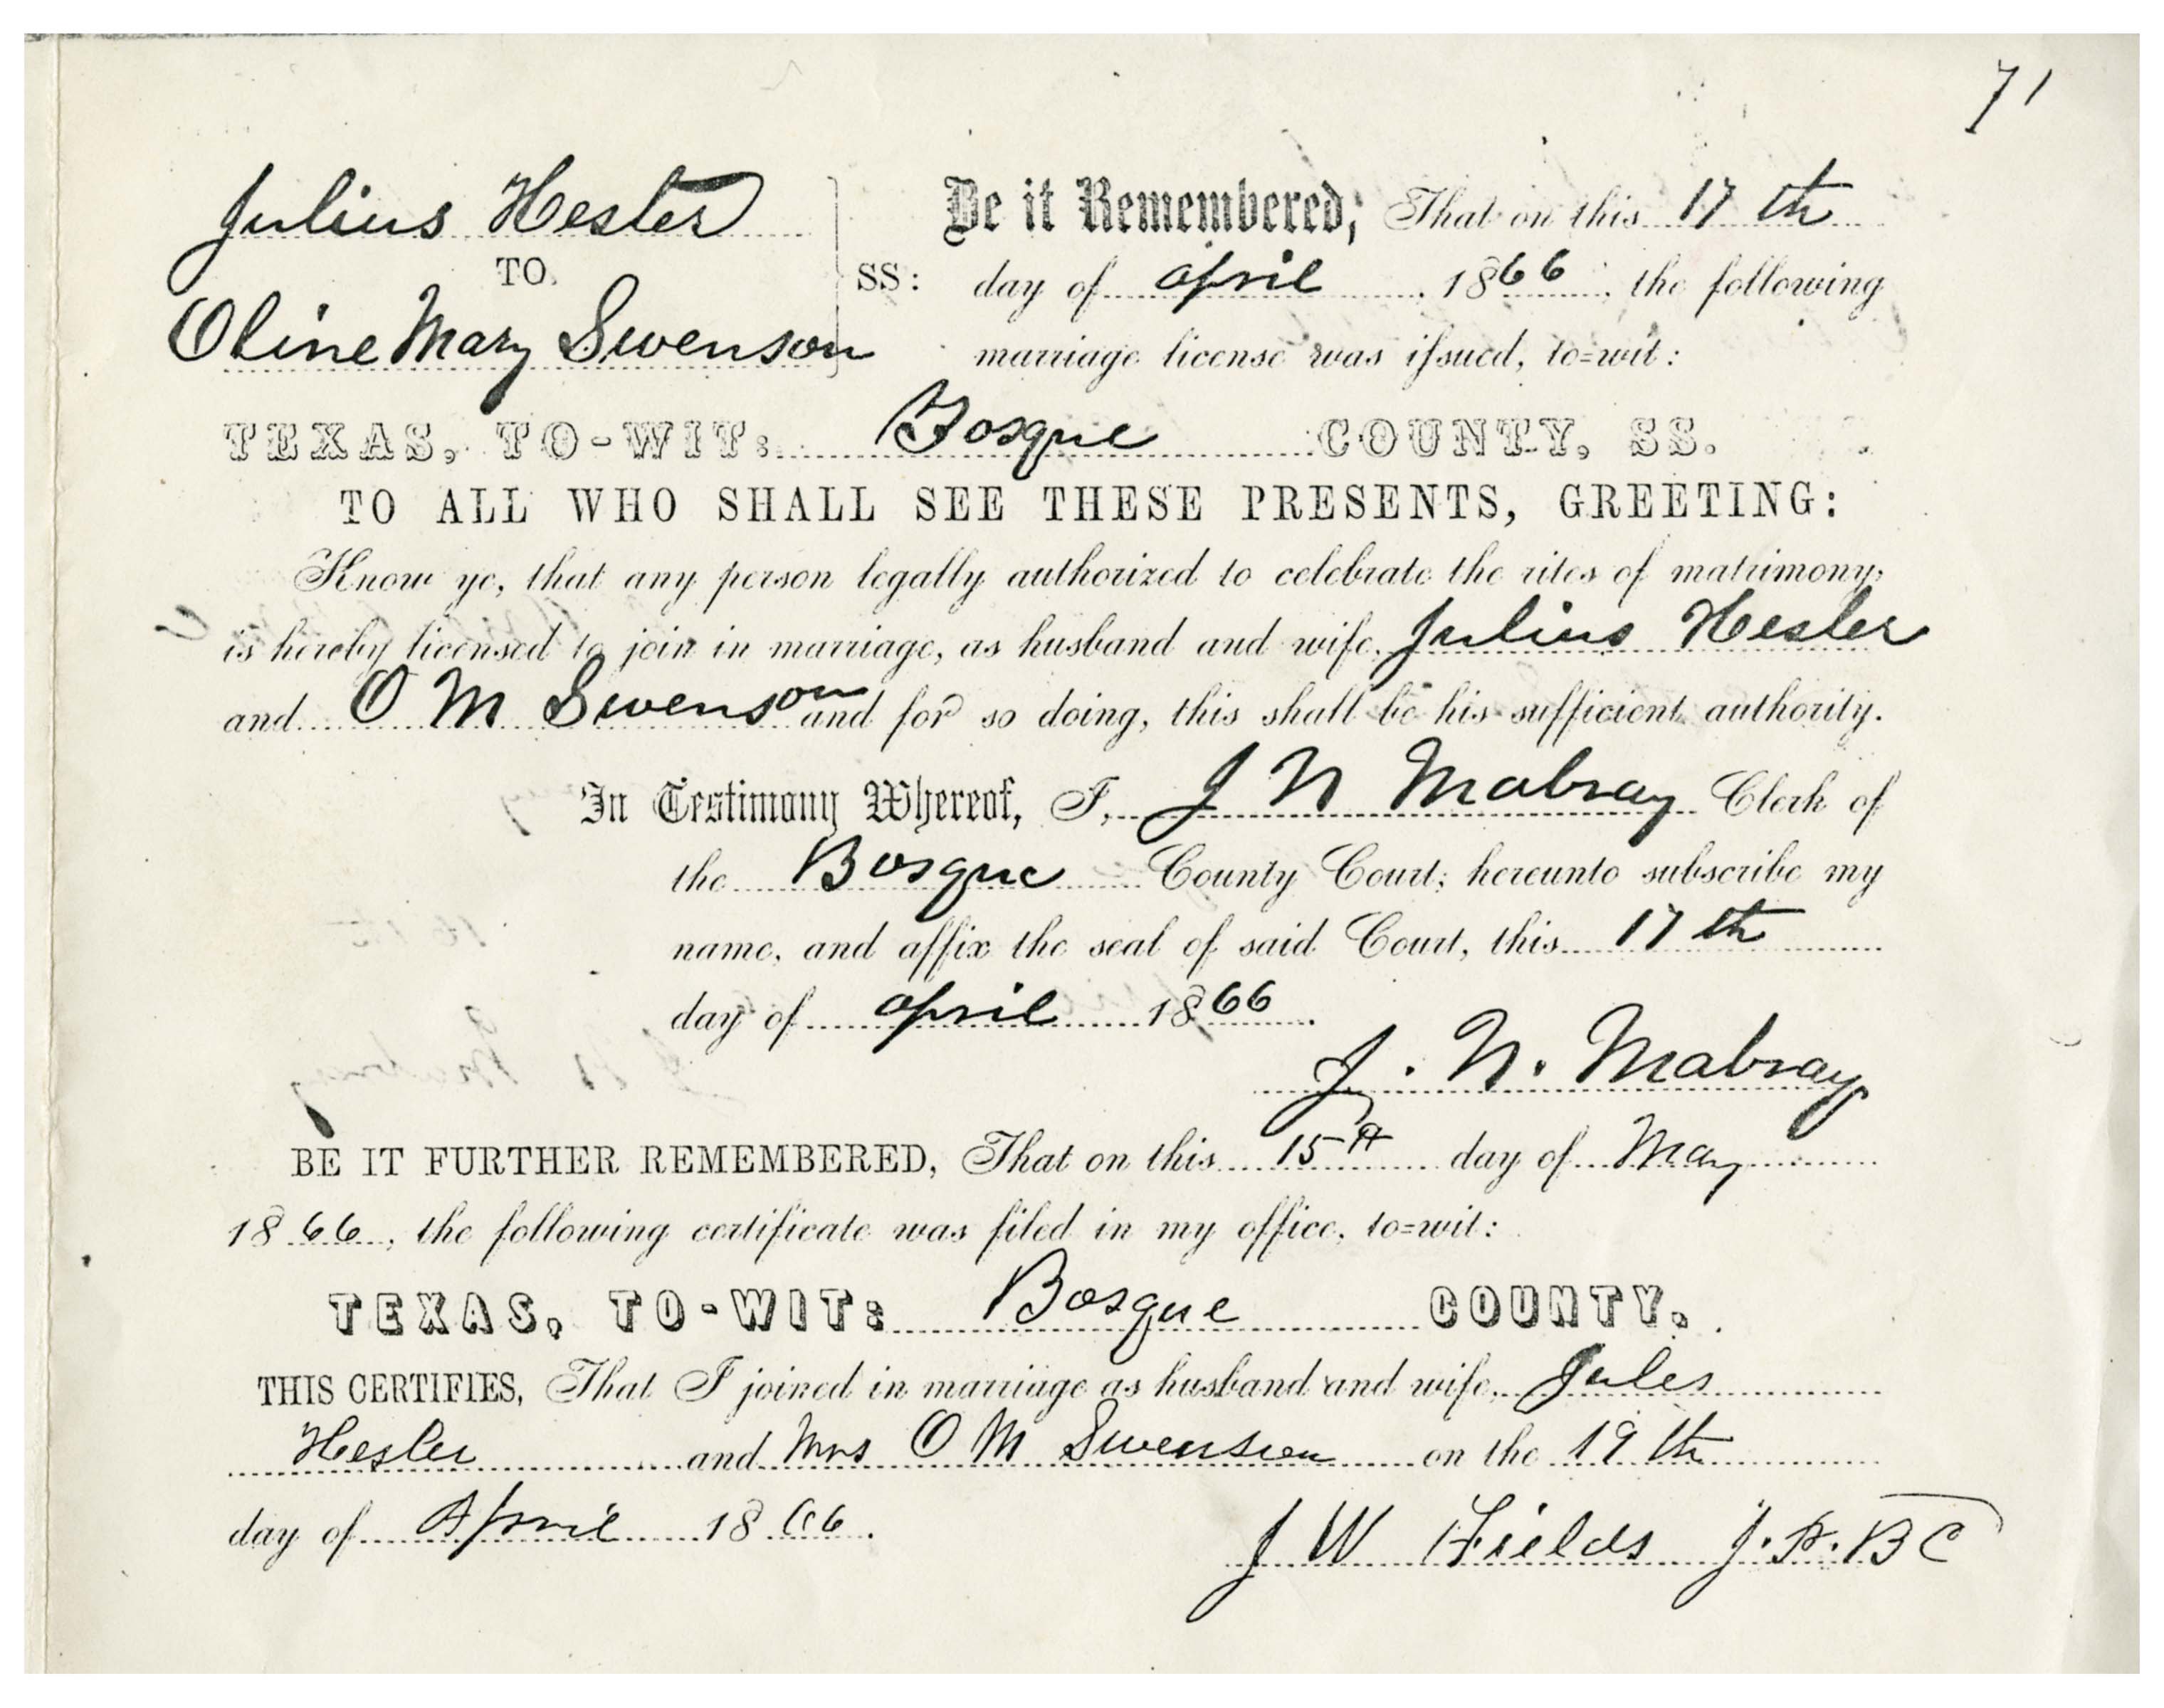 71
Julius Hester
TO
Oline Mary Swenson
SS:
Be it Remembered, That on this 17th
day of april 1866, the following
marriage license was issued, to=wit:
TEXAS, TO-WIT: Bosque COUNTY, SS.
TO ALL WHO SHALL SEE THESE PRESENTS, GREETING:
Know ye, that any person legally authorized to celebrate the rites of matrimony,
is hereby licensed to join in marriage, as husband and wife, Julius Hester
and O M Swenson and for so doing, this shall be his sufficient authority.
In Testimony Whereof, I, J N Mabray Clerk of
the Bosque County Court; hereunto subscribe my
name, and affix the seal of said Court, this 17th
day of april 1866.
J. N. Mabray
BE IT FURTHER REMEMBERED, That on this 15th day of May
1866, the following certificate was filed in my office, to=wit:
TEXAS, TO-WIT: Bosque COUNTY.
THIS CERTIFIES, That I joined in marriage as husband and wife, Jules
Hesler and Mrs O M Swenson on the 19th
day of April 1866.
J W Fields J.P. BC